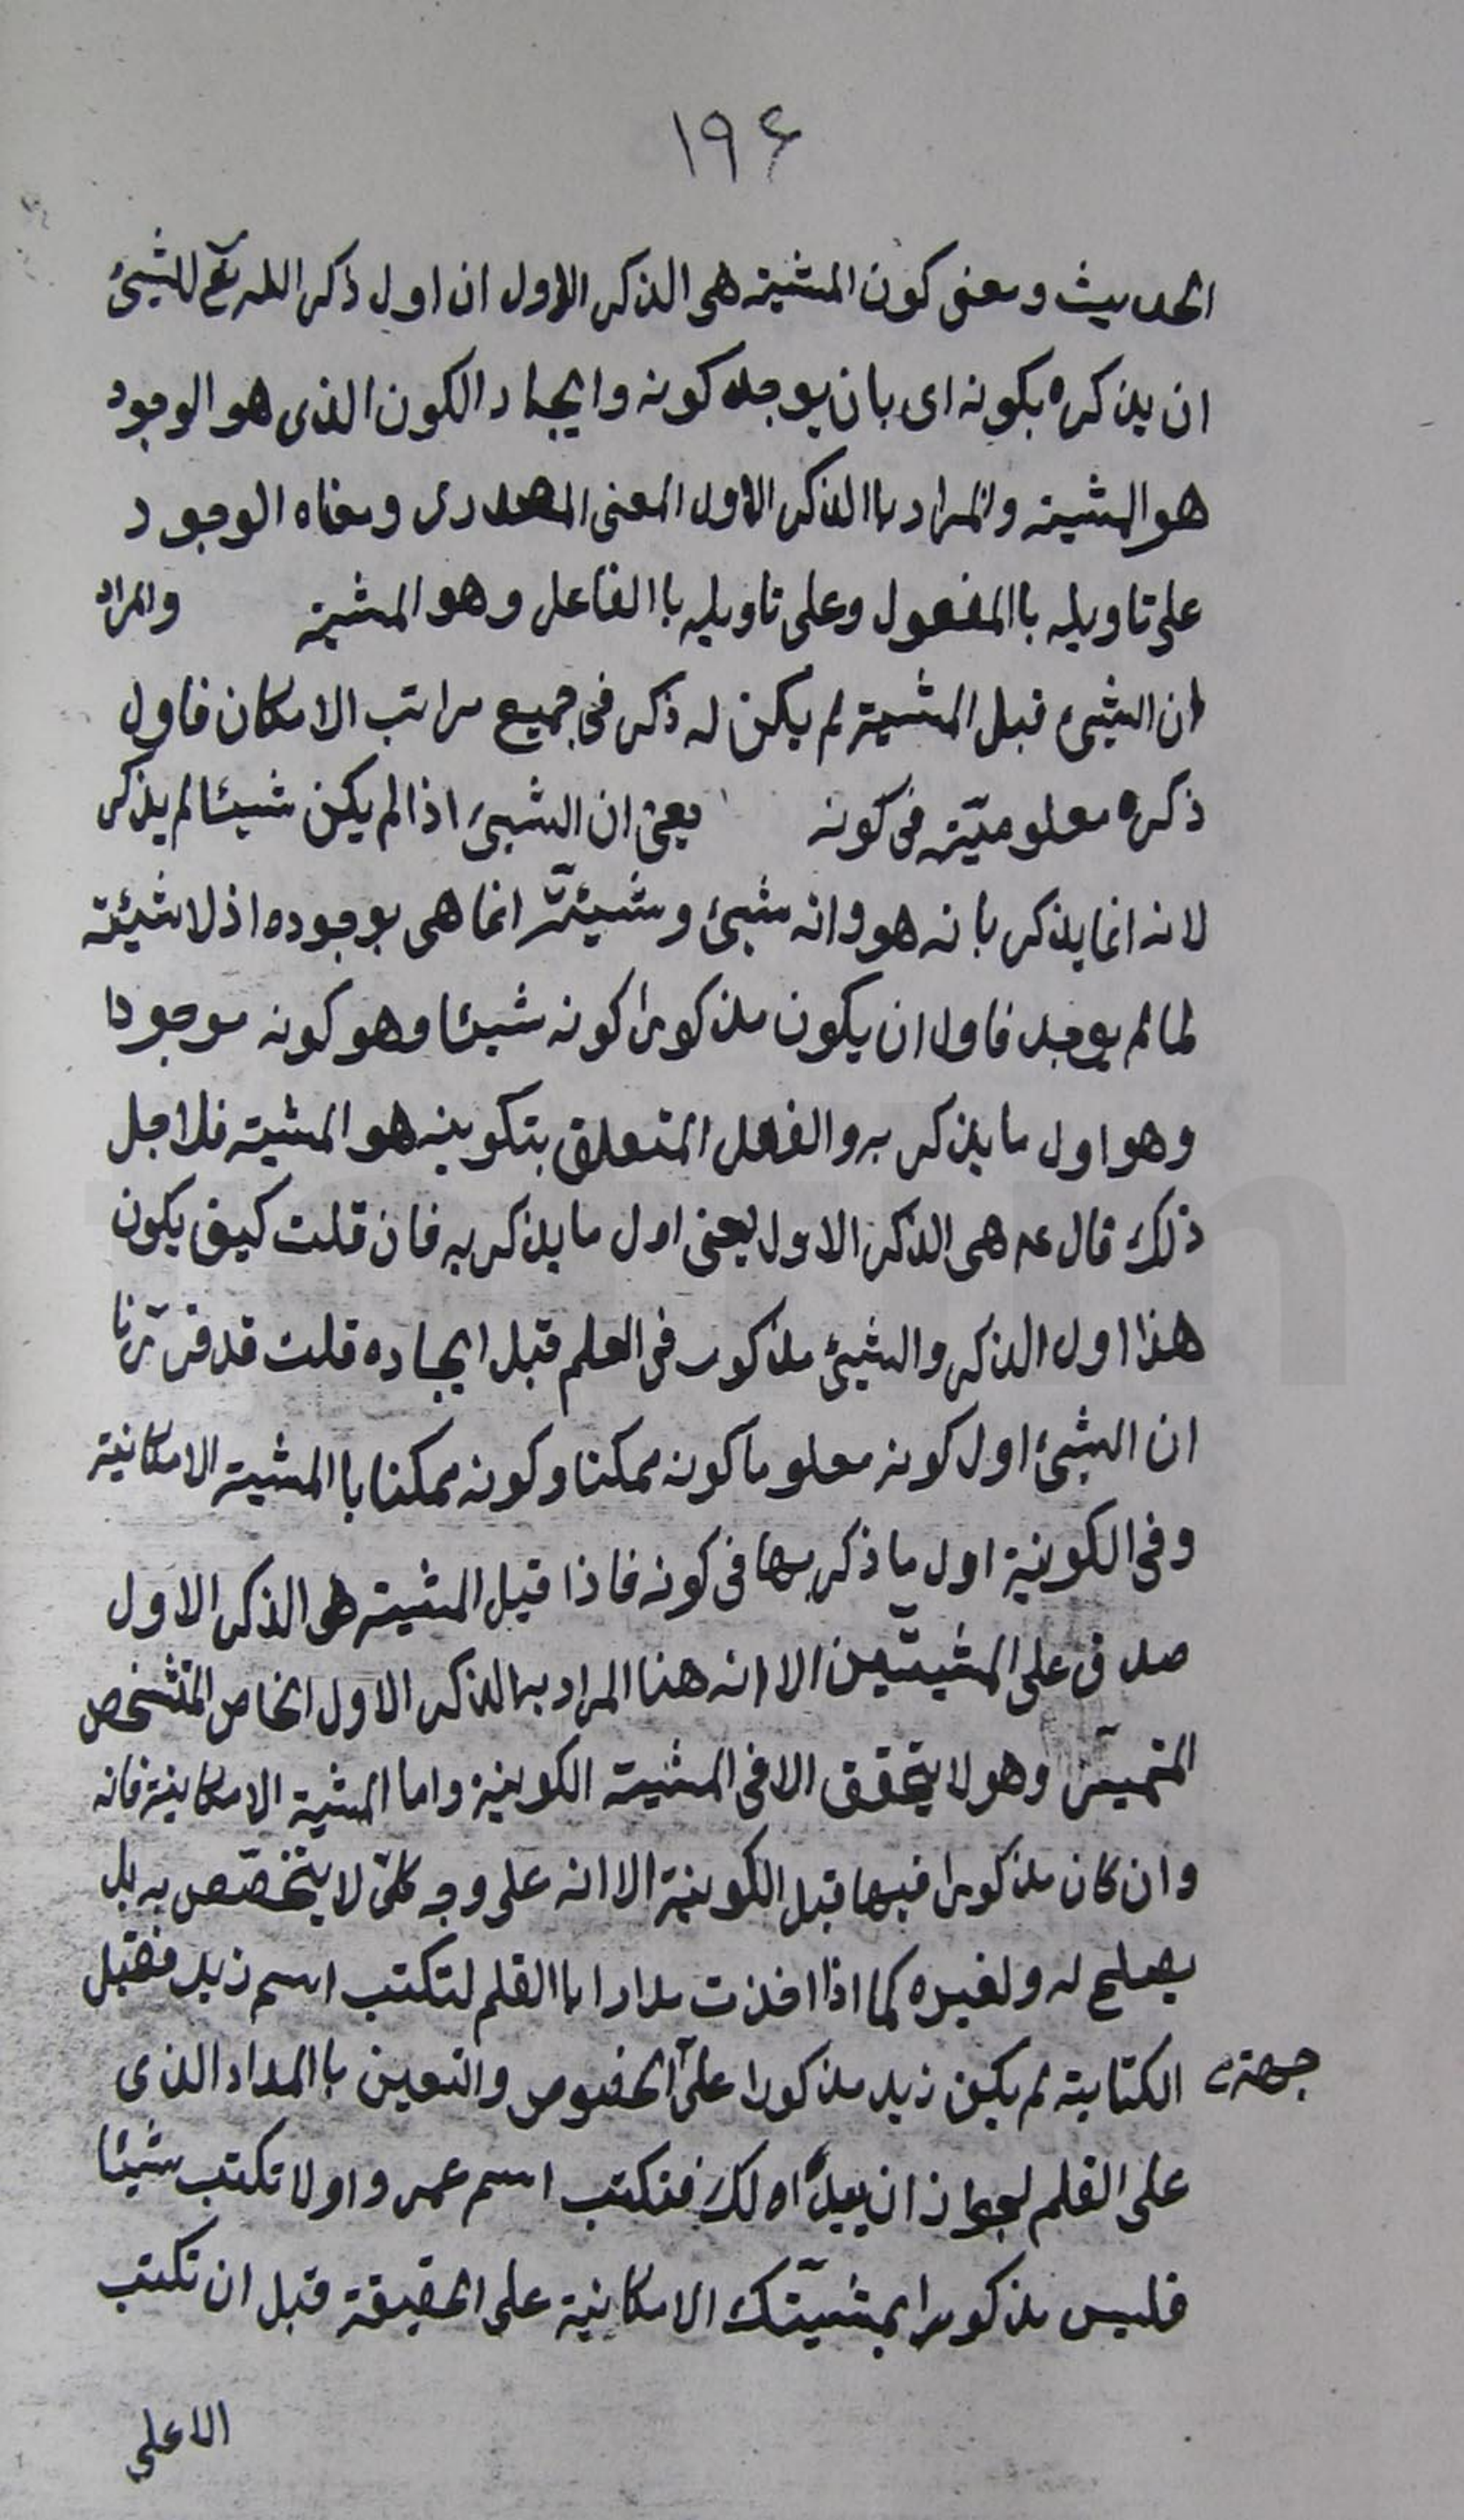 ۱۹۶
الحديث ومعنى كون المشية هى الذكر الاول ان اول ذكر الله تع للشيئ
ان يذكره بكونه اى بان يوجد كونه وايجاد الكون الذى هو الوجود
هو المشية والمراد باالذكر الاول المعنى المصدرى ومعناه الوجود
على تاويله باالمفعول وعلى تاويله باالفاعل وهو المشية والمراد
ان الشيئ قبل المشية لم يكن له ذكر فى جميع مراتب الامكان فاول
ذكره معلوميّته فى كونه يعنى ان الشيئ اذا لم يكن شيئا لم يذكر
لانه انما يذكر بانه هو وانه شيئ وشيئيّته انما هى بوجوده اذ لا شيئية
لما لم يوجد فاول ان يكون مذكورا كونه شيئا وهو كونه موجودا
وهو اول ما يذكر به والفعل المتعلق بتكوينه هو المشية فلاجل
ذلك قال عه هى الذكر الاول يعنى اول ما يذكر به فان قلت كيف يكون
هذا اول الذكر والشيئ مذكور فى العلم قبل ايجاده قلت قد قرّرنا
ان الشيئ اول كونه معلوما كونه ممكنا وكونه ممكنا باالمشية الامكانية
وفى الكونية اول ما ذكر بها فى كونه فاذا قيل المشية هى الذكر الاول
صدق على المشيتّين الا انه هنا المراد به الذكر الاول الخاص المتشخص
المتميّز وهو لا يتحقق الا فى المشية الكونية واما المشية الامكانية فانه
وان كان مذكورا فيها قبل الكونية الا انه على وجه كلىّ لا يتخصّص به بل
يصلح له ولغيره كما اذا اخذت مدادا باالقلم لتكتب اسم زيد فقبل
الكتابة لم يكن زيد مذكورا على الخصوص والتعين باالمداد الذى
جهة
على القلم لجواز ان يبدّاه لك فتكتب اسم عمرو او لا تكتب شيئا
فليس مذكورا بمشيّتك الامكانية على الحقيقة قبل ان تكتب
الا على